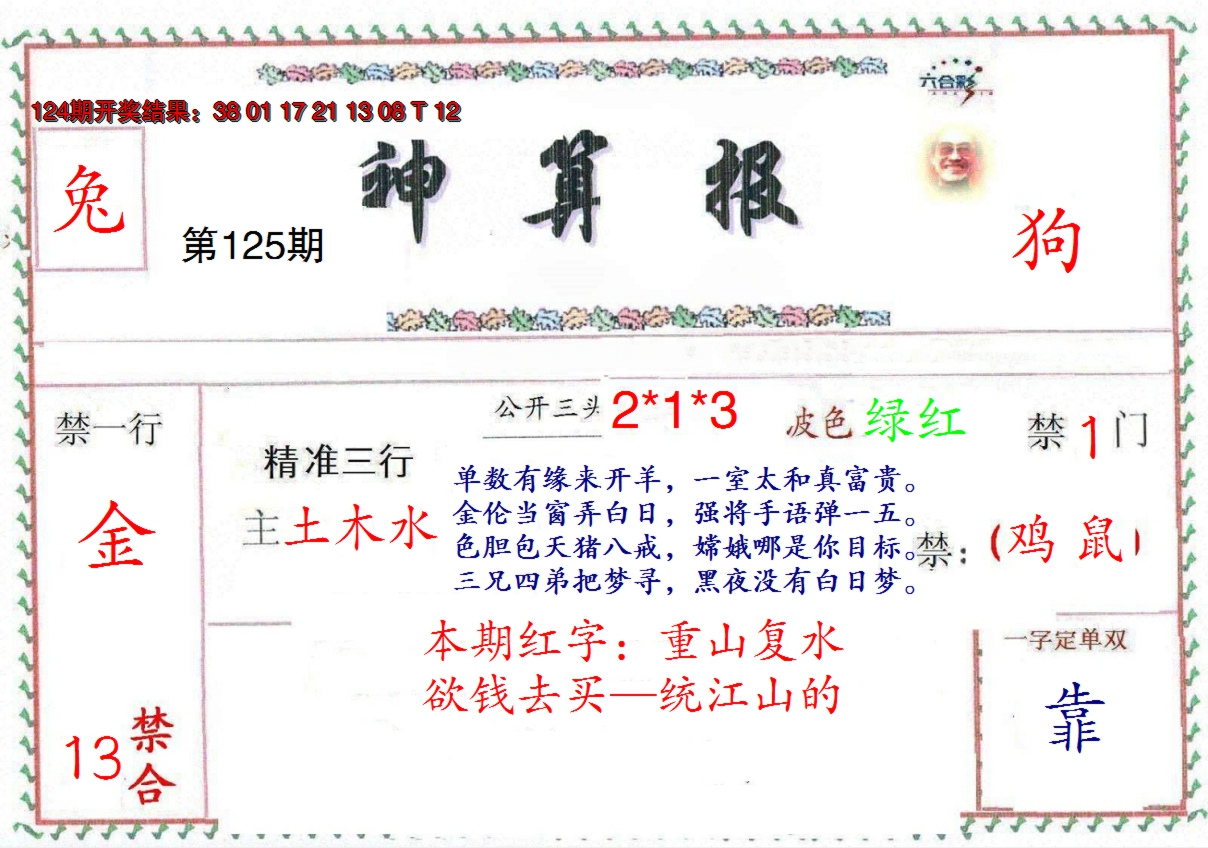 六合彩
124期开奖结果：38 01 17 21 13 08 T 12
神算报
兔
第125期
狗
禁一行
金
13禁合
精准三行
主土木水
公开三头 2*1*3
波色 绿红
禁1门
单数有缘来开羊，一室太和真富贵。
金伦当窗弄白日，强将手语弹一五。
色胆包天猪八戒，嫦娥哪是你目标。
三兄四弟把梦寻，黑夜没有白日梦。
禁：(鸡 鼠)
本期红字：重山复水
欲钱去买—统江山的
一字定单双
靠